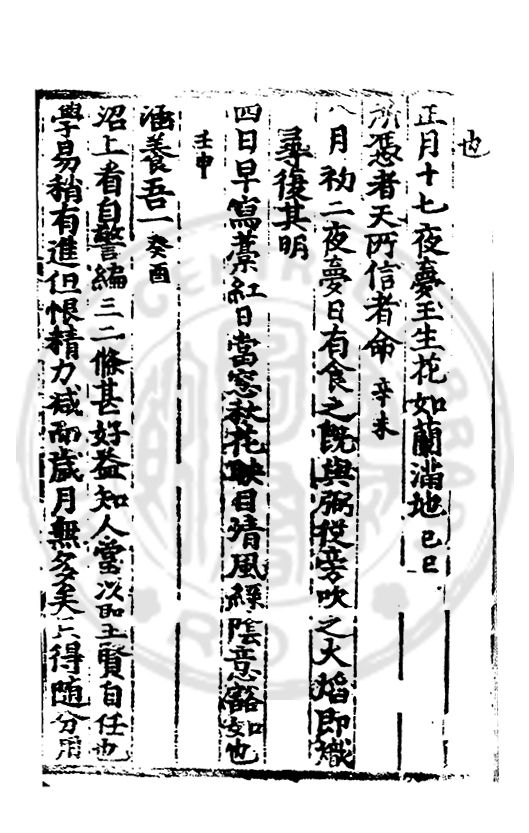 也
正月十七夜夢玉生花如蘭滿地 己巳
所憑者天所信者命 辛未
八月初二夜夢日有食之既與弼從旁吹之火焰即熾
尋復其明
四日早寫藁紅日當窓秋花映目清風綠陰意豁如也
壬申
涵養吾一 癸酉
沼上看自警編三二條甚好益知人當以聖賢自任也
學易稍有進但恨精力减而歲月無多矣只得隨分用